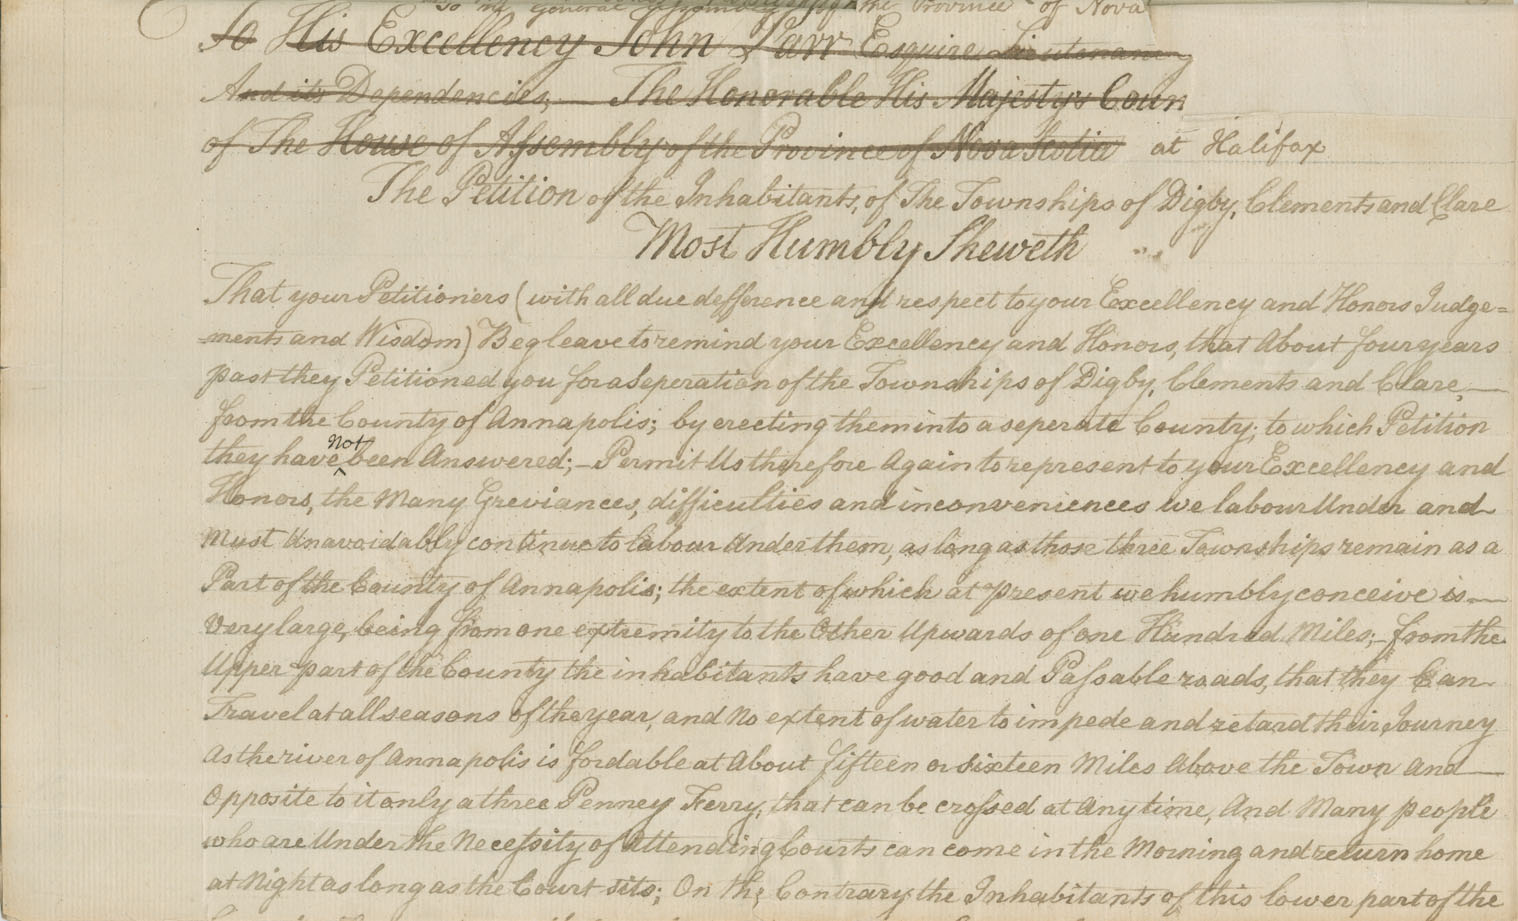 To the General Assembly of the Province of Nova
To His Excellency John Parr Esquire Lieutenant
And its Dependencies, — The Honorable His Majestys Coun
of The House of Assembly of the Province of Nova Scotia at Halifax
The Petition of the Inhabitants, of The Townships of Digby, Clements and Clare
Most Humbly Sheweth
That your Petitioners (with all due defference and respect to your Excellency and Honors Judge=
=ments and Wisdom) Beg leave to remind your Excellency and Honors, that About four years
past they Petitioned you for a Seperation of the Townships of Digby, Clements and Clare, —
from the County of Annapolis; by erecting them into a seperate County; to which Petition
they have Not been Answered; – Permit Us therefore Again to represent to your Excellency and
Honors, the Many Greviances, difficulties and inconveniences we labour Under and
Must Unavoidably continue to labour Under them, as long as those three Townships remain as a
Part of the County of Annapolis; the extent of which at present we humbly conceive is —
Very large, being from one extremity to the Other Upwards of one Hundred Miles; – from the
Upper part of the County the inhabitants have good and Passable roads, that they Can
Travel at all seasons of the year, and No extent of water to impede and retard their Journey
As the river of Annapolis is fordable at About fifteen or Sixteen Miles Above the Town and —
Opposite to it only a three Penney Ferry, that can be crossed at Any time, And Many people
who are Under the Necessity of Attending Courts can come in the Morning and return home
at Night as long as the Court sits; On the Contrary the Inhabitants of this lower part of the